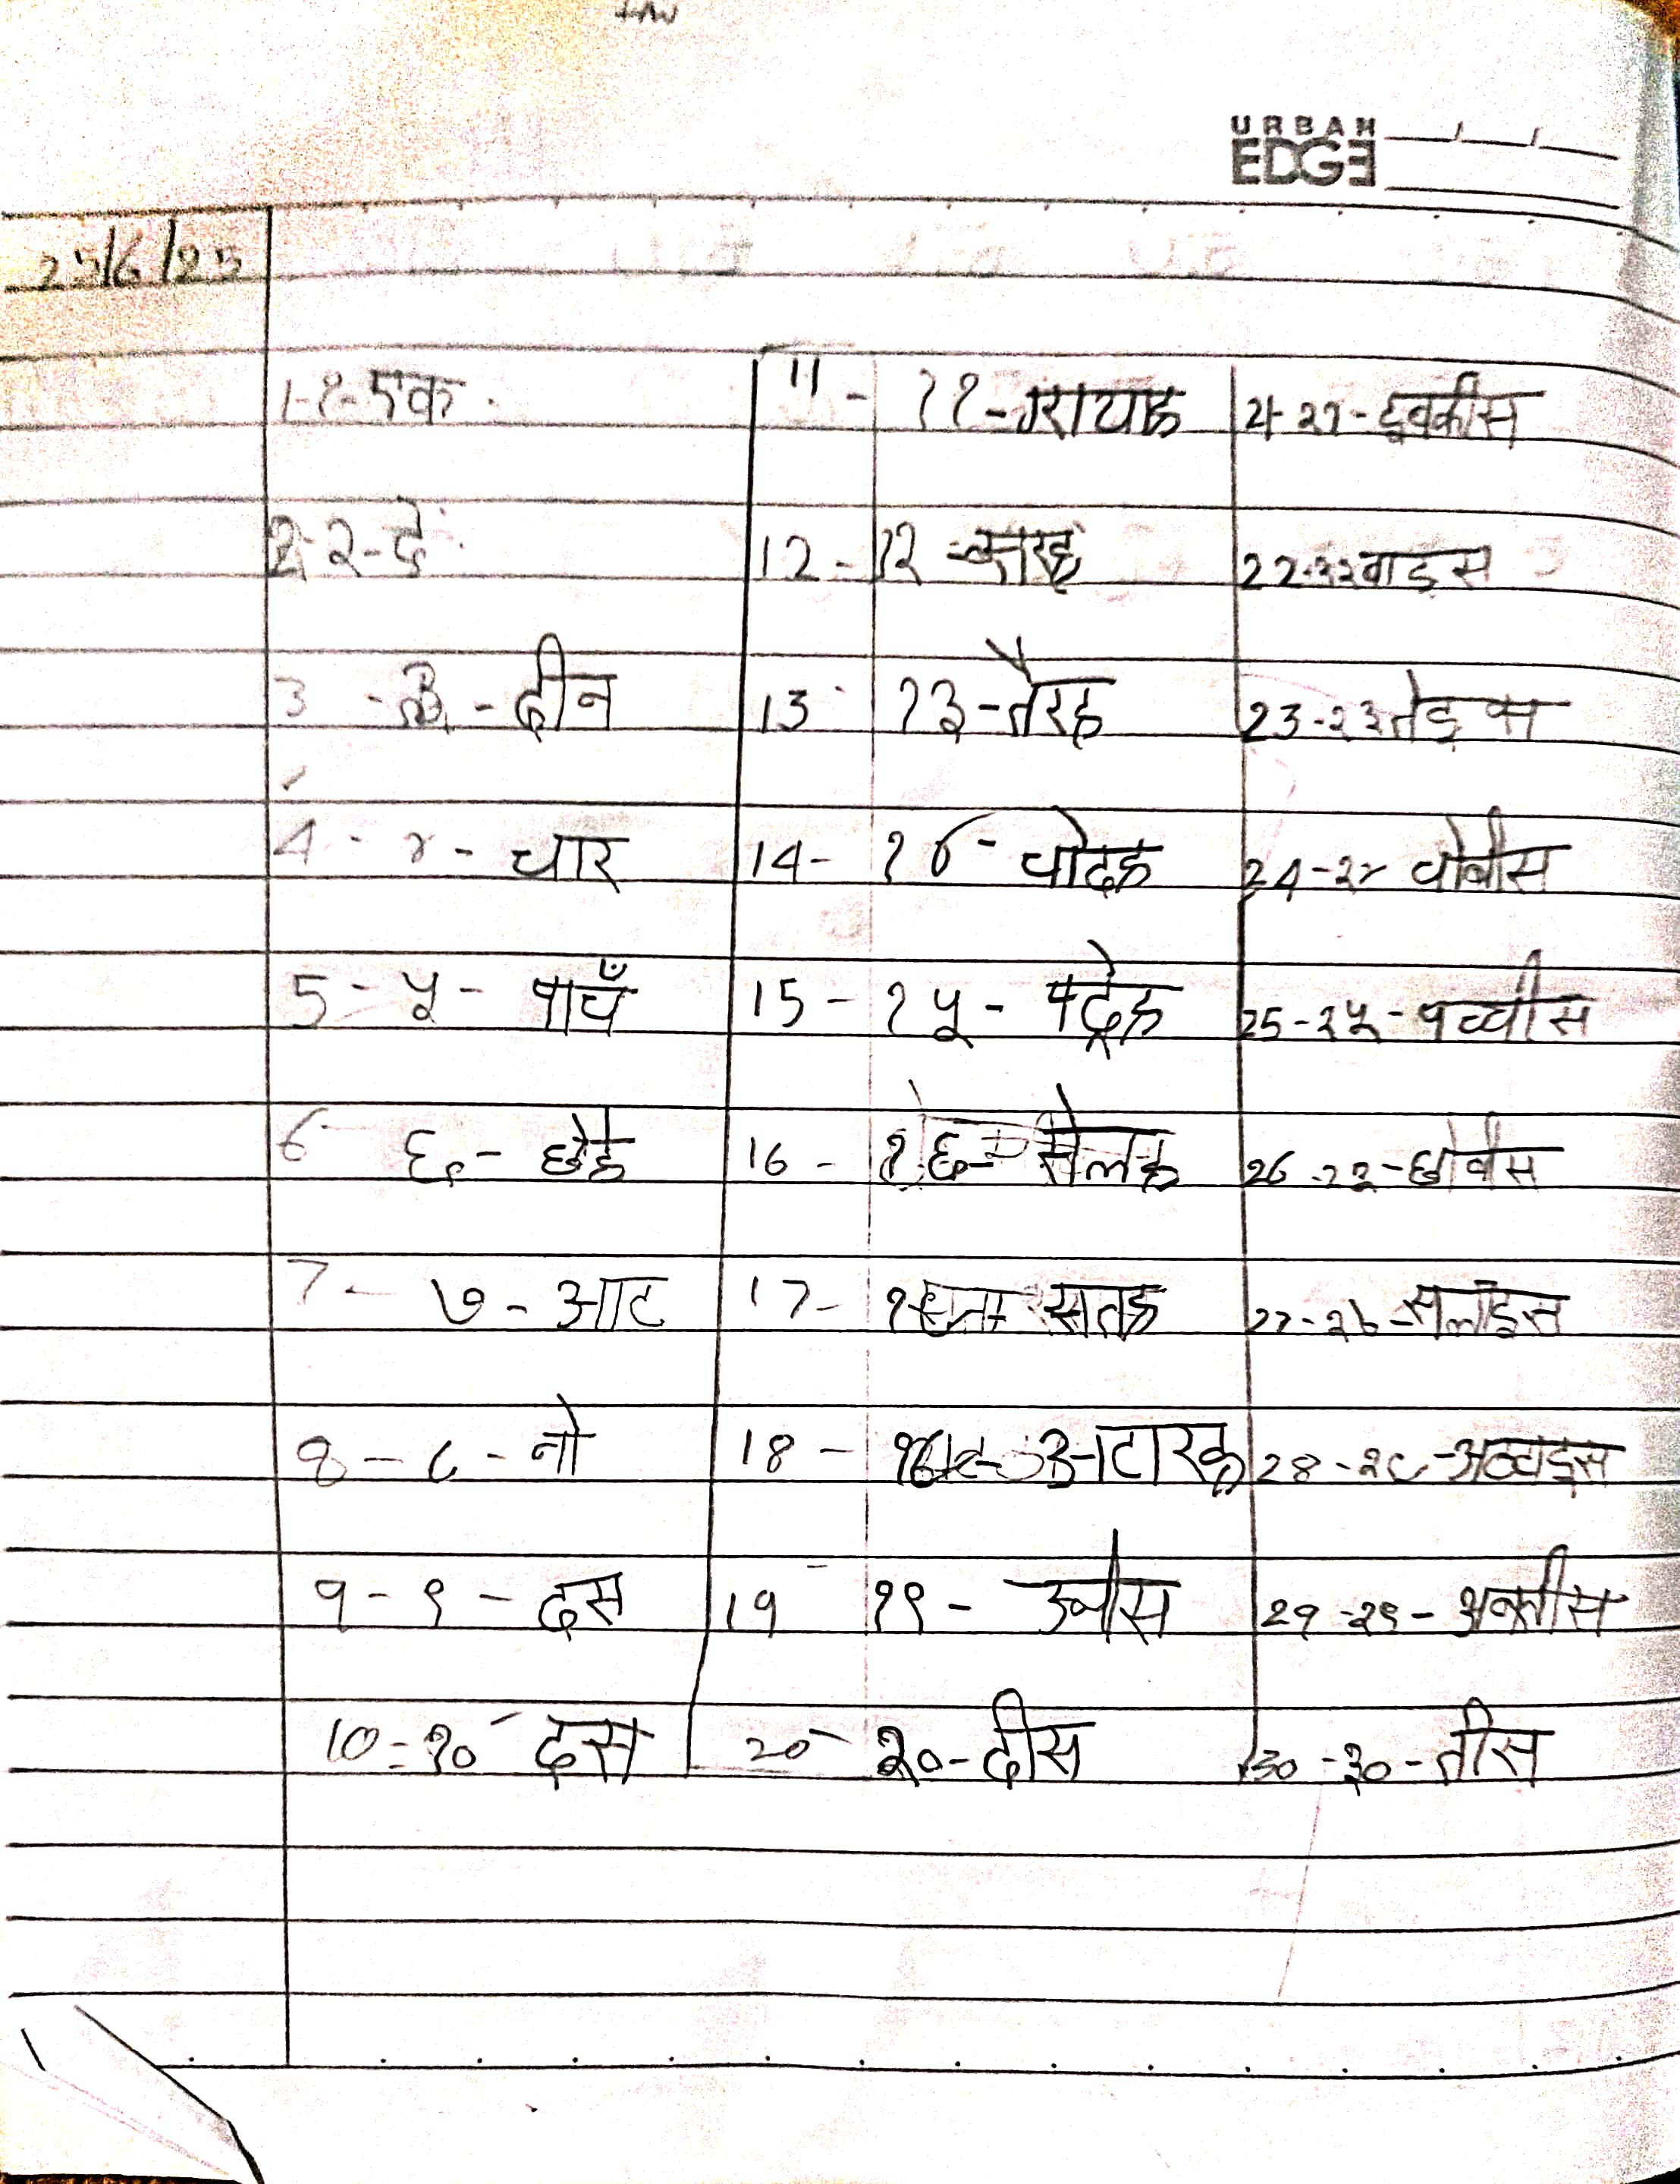 HW
URBAN
EDGE
25/6/25
1-१-एक 11 - ११-ग्रायह 21-२१-इक्कीस
2-२-दो 12 - १२ 22-२२ वाइस
3 - ३ - दीन 13 १३-तेरह 23-२३ तेइस
4 - ४ - चार 14 - १४ - चोदह 24-२४ चोबीस
5 - ५ - पाचँ 15 - १५ - पद्रेह 25-२५-पच्चीस
6 ६ - छेह 16 - १६ - सोलह 26-२६-छोबीस
7 - ७ - आट 17 - सतह 27-२७-सताइस
8 - ८ - नो 18 - अटारह 28-२८-अठ्ठाइस
9 - ९ - दस 19 १९ - उनीस 29-२९-
10 - १० - दस 20 - २०-दीस 30-३०-तीस